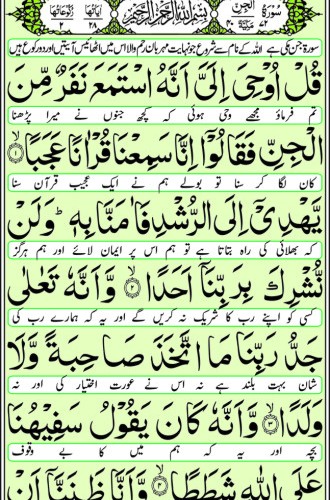 سُوْرَةُ الْجِنِّ ٧٢ ٤٠ بِسْمِ اللّٰهِ الرَّحْمٰنِ الرَّحِيْمِ اٰيَاتُهَا ٢٨ رُكُوْعَاتُهَا ٢
سورۃ جن مکی ہے اللہ کے نام سے شروع جو نہایت مہربان رحم والا اس میں اٹھائیس آیتیں اور دو رکوع ہیں
قُلْ اُوْحِیَ اِلَیَّ اَنَّهُ اسْتَمَعَ نَفَرٌ مِّنَ
تم فرماؤ مجھے وحی ہوئی کہ کچھ جنوں نے میرا پڑھنا
الْجِنِّ فَقَالُوْۤا اِنَّا سَمِعْنَا قُرْاٰنًا عَجَبًا ۙ﴿۱﴾
کان لگا کر سنا تو بولے ہم نے ایک عجیب قرآن سنا
یَّهْدِیْۤ اِلَی الرُّشْدِ فَاٰمَنَّا بِهٖ ؕ وَلَنْ
کہ بھلائی کی راہ بتاتا ہے تو ہم اس پر ایمان لائے اور ہم ہرگز
نُّشْرِكَ بِرَبِّنَاۤ اَحَدًا ۙ﴿۲﴾ وَّاَنَّهٗ تَعٰلٰی
کسی کو اپنے رب کا شریک نہ کریں گے اور یہ کہ ہمارے رب کی
جَدُّ رَبِّنَا مَا اتَّخَذَ صَاحِبَةً وَّلَا
شان بہت بلند ہے نہ اس نے عورت اختیار کی اور نہ
وَلَدًا ۙ﴿۳﴾ وَّاَنَّهٗ كَانَ یَقُوْلُ سَفِیْهُنَا
بچہ اور یہ کہ ہم میں کا بے وقوف
عَلَی اللّٰهِ شَطَطًا ۙ﴿۴﴾ وَّاَنَّا ظَنَنَّاۤ اَنْ